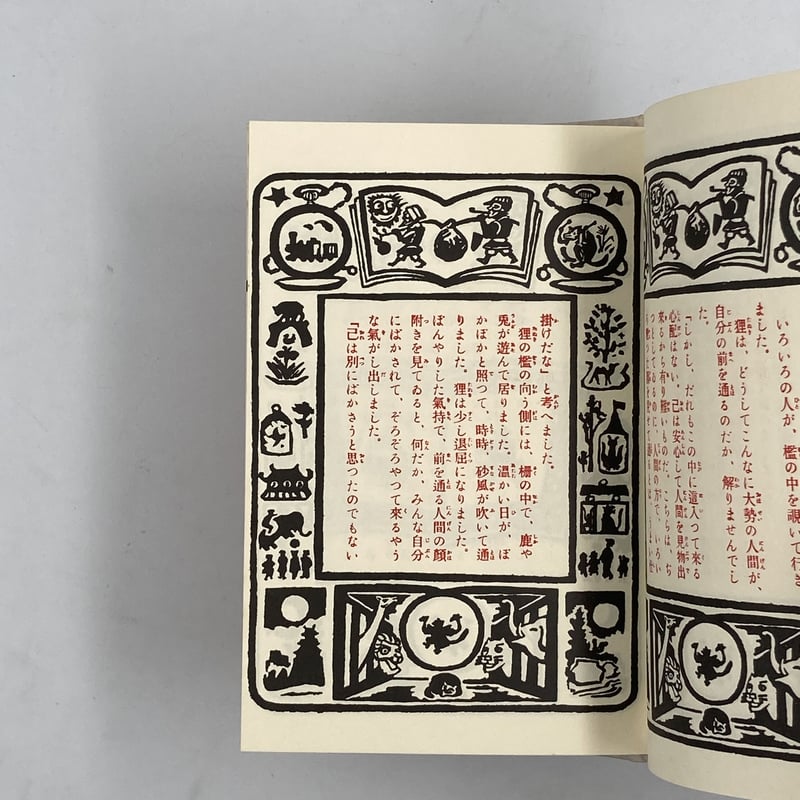 いろいろの人が、檻の中を覗いて行き
ました。
狸は、どうしてこんなに大勢の人間が、
自分の前を通るのだか、解りませんでし
た。
「しかし、だれもこの中に這入つて來る
心配はない。己は安心して人間を見物出
來るから有り難いものだ。こちらは、ぢ
つとしてゐるのに、人間の方で、いろい
掛けだな」と考へました。
狸の檻の向う側には、柵の中で、鹿や
兎が遊んで居りました。溫かい日が、ぽ
かぽかと照つて、時時、砂風が吹いて通
りました。狸は少し退屈になりました。
ぼんやりした氣持で、前を通る人間の顏
附きを見てゐると、何だか、みんな自分
にばかされて、ぞろぞろやつて來るやう
な氣がし出しました。
「己は別にばかさうと思つたのでもない